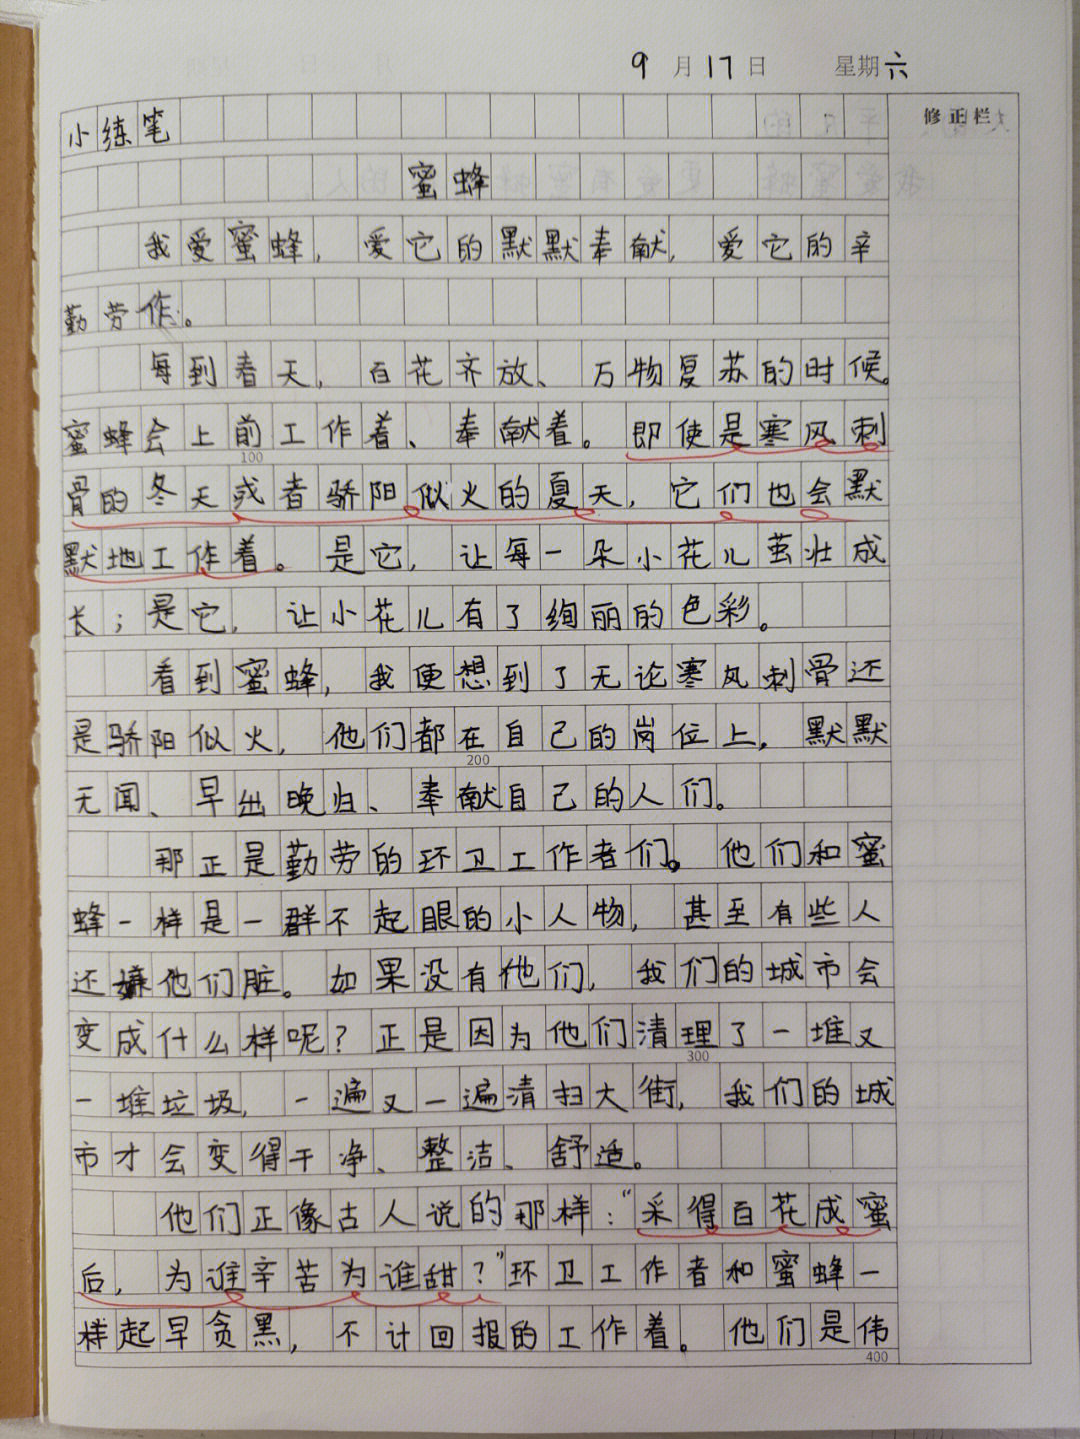 9月17日 星期六
修正栏
小练笔
蜜蜂
我爱蜜蜂，爱它的默默奉献，爱它的辛
勤劳作。
每到春天，百花齐放、万物复苏的时候。
蜜蜂会上前工作着、奉献着。即使是寒风刺
100
骨的冬天或者骄阳似火的夏天，它们也会默
默地工作着。是它，让每一朵小花儿茁壮成
长；是它，让小花儿有了绚丽的色彩。
看到蜜蜂，我便想到了无论寒风刺骨还
是骄阳似火，他们都在自己的岗位上，默默
200
无闻、早出晚归、奉献自己的人们。
那正是勤劳的环卫工作者们。他们和蜜
蜂一样是一群不起眼的小人物，甚至有些人
还嫌他们脏。如果没有他们，我们的城市会
变成什么样呢？正是因为他们清理了一堆又
300
一堆垃圾，一遍又一遍清扫大街，我们的城
市才会变得干净、整洁、舒适。
他们正像古人说的那样：“采得百花成蜜
后，为谁辛苦为谁甜？”环卫工作者和蜜蜂一
样起早贪黑，不计回报的工作着。他们是伟
400